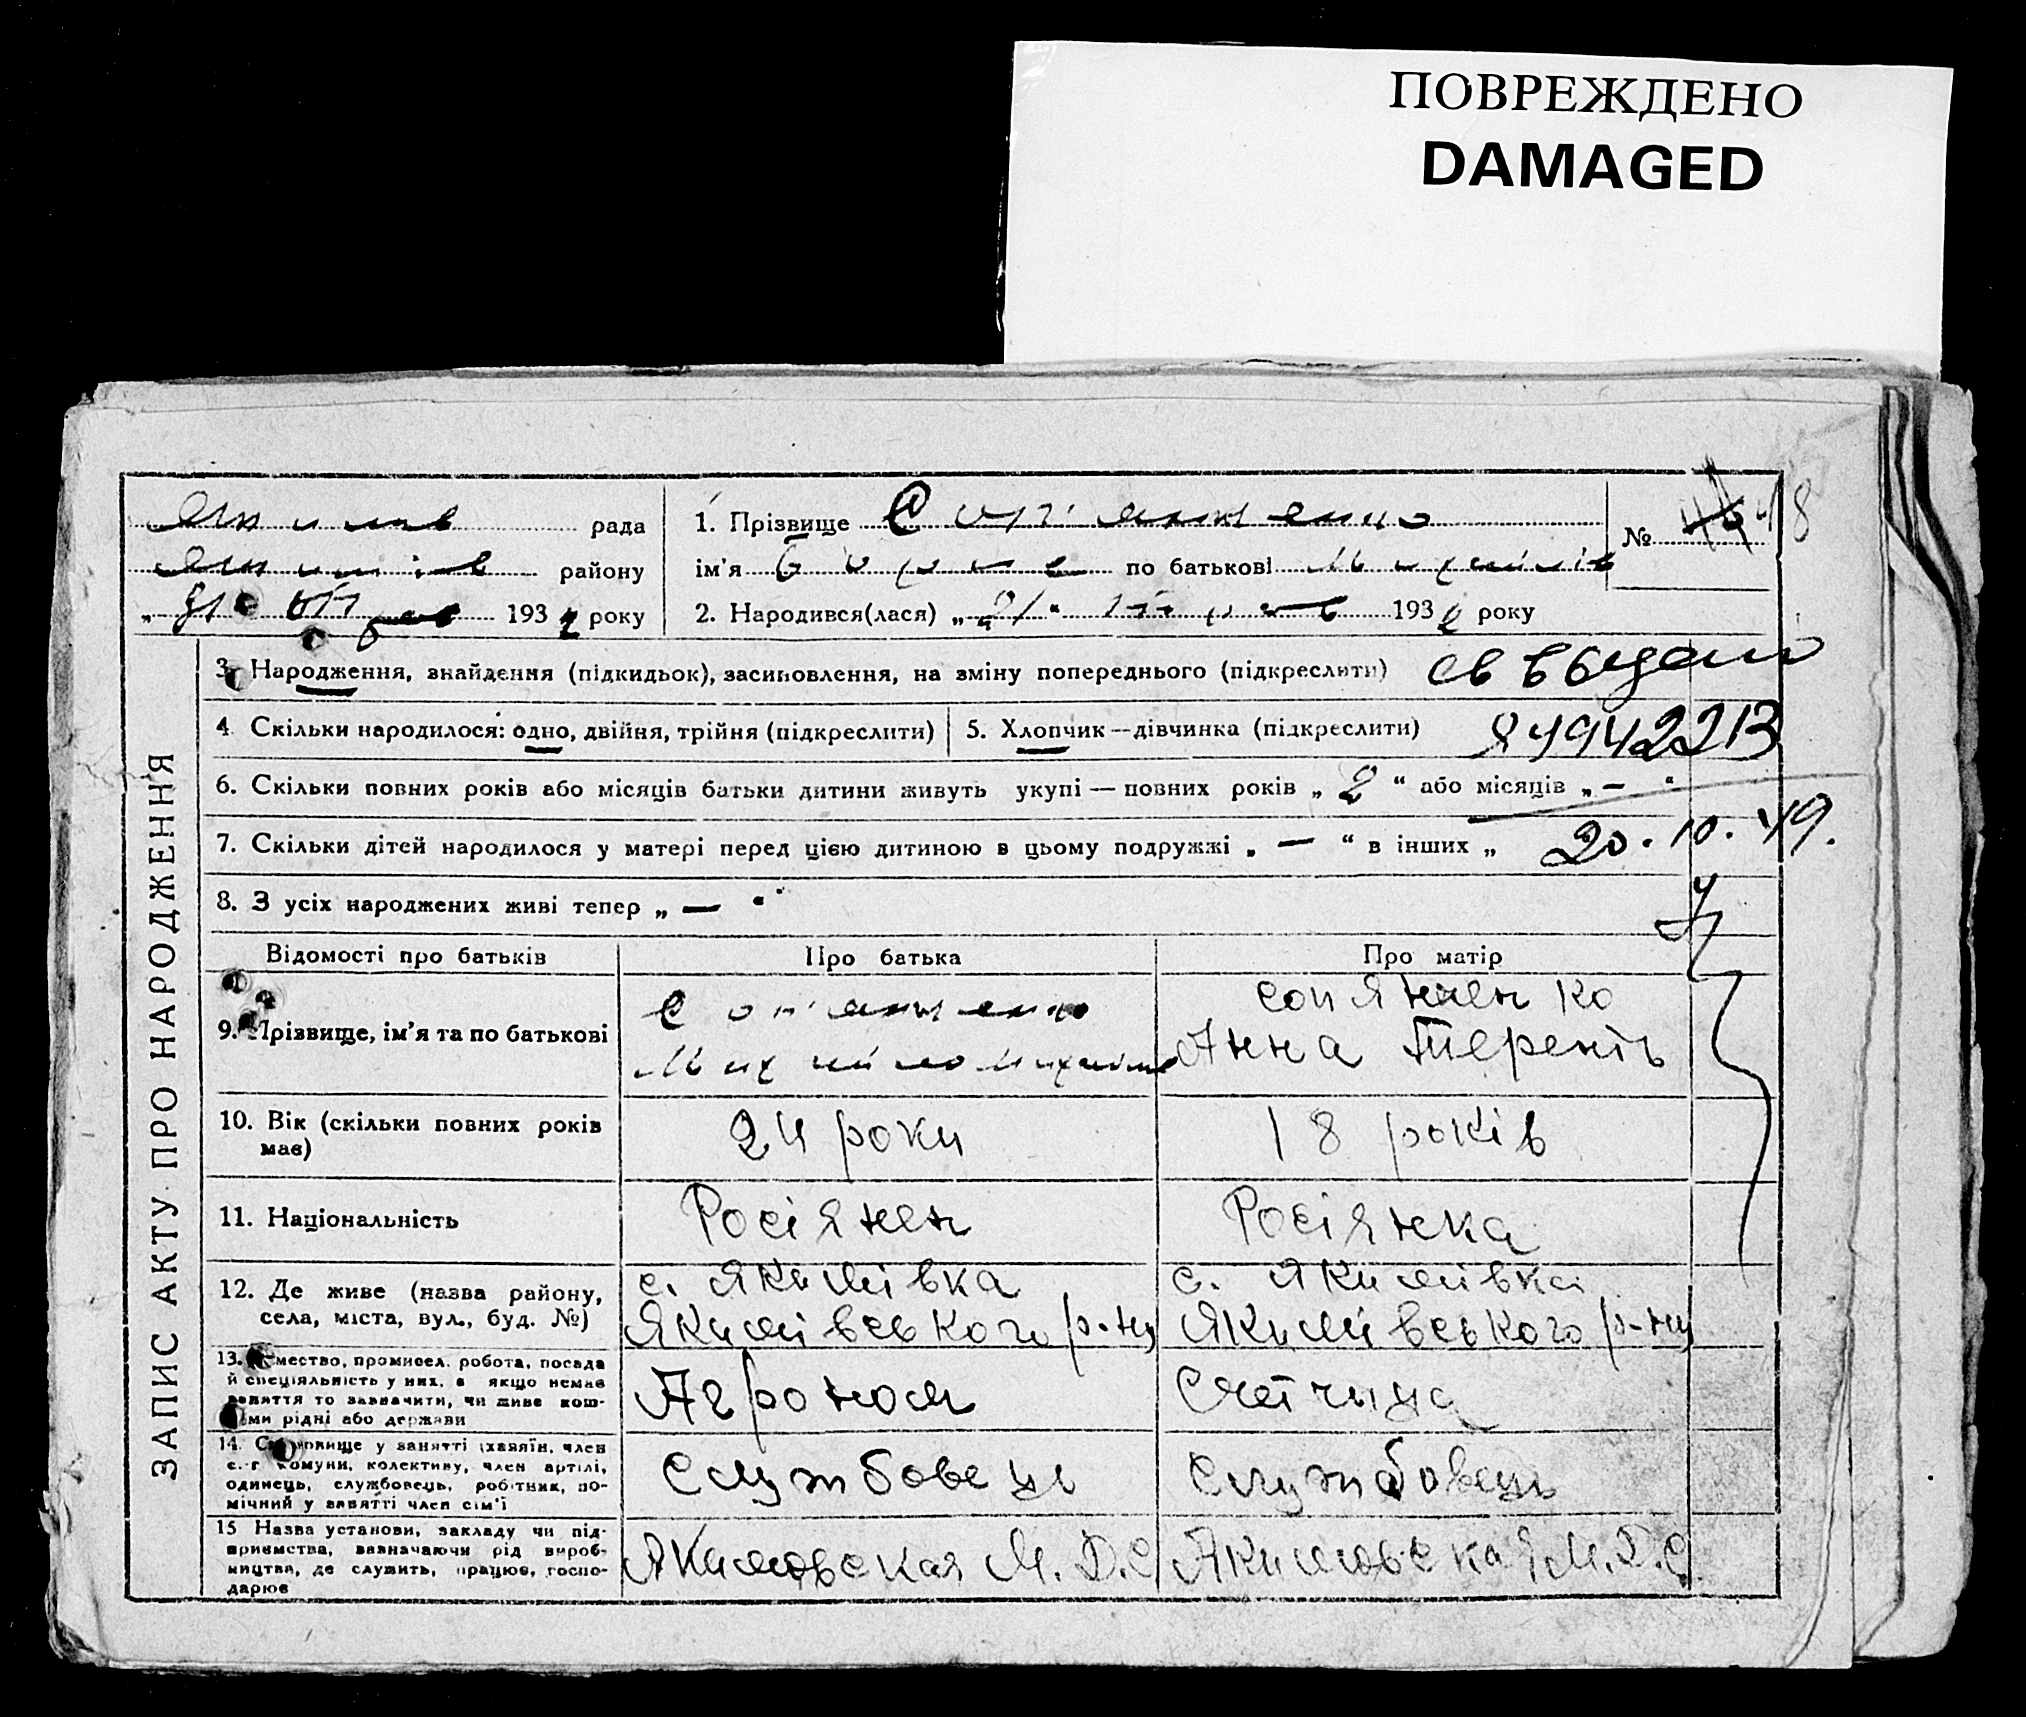 ПОВРЕЖДЕНО
DAMAGED
рада
району
193 2 року
1. Прізвище
ім'я Борис по батькові Михайлів
2. Народився(лася) „21" 193 2 року
№ 48
ЗАПИС АКТУ ПРО НАРОДЖЕННЯ
3. Народження, знайдення (підкидьок), засиновлення, на зміну попереднього (підкреслити)
4. Скільки народилося: одно, двійня, трійня (підкреслити)
5. Хлопчик—дівчинка (підкреслити)
6. Скільки повних років або місяців батьки дитини живуть укупі — повних років „ 2 " або місяців „ — "
7. Скільки дітей народилося у матері перед цією дитиною в цьому подружжі „ — " в інших „
20.10.49.
8. З усіх народжених живі тепер „ — "
Відомості про батьків
Про батька
Про матір
9. Прізвище, ім'я та по батькові
Михайло Михайлов
Анна Терентів
10. Вік (скільки повних років має)
24 роки
18 років
11. Національність
Росіянен
Росіянка
12. Де живе (назва району, села, міста, вул., буд. №)
с. Якимівка
Якимівського р-ну
с. Якимівка
Якимівського р-ну
13. ремество, промисел. робота, посада
й спеціяльність у них, а якщо немає
заняття то зазначити, чи живе кош-
тами рідні або держави
Агроном
Счетчица
14. Становище у занятті (хазяїн, член
с.-г комуни, колективу, член артілі,
одинець, службовець, робітник, по-
мічний у занятті член сім'ї
Службовець
Службовець
15 Назва установи, закладу чи під-
приємства, зазначаючи рід вироб-
ництва, де служить, працює, госпо-
дарює
Якимовская М.Т.С
Якимовская М.Т.С.